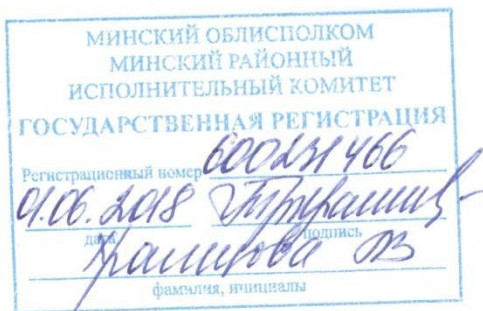 МИНСКИЙ ОБЛИСПОЛКОМ
МИНСКИЙ РАЙОННЫЙ
ИСПОЛНИТЕЛЬНЫЙ КОМИТЕТ
ГОСУДАРСТВЕННАЯ РЕГИСТРАЦИЯ
Регистрационный номер 600231466
01.06.2018
дата подпись
фамилия, инициалы